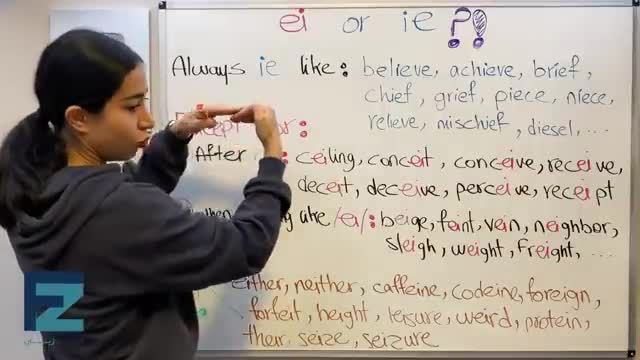 ei or ie ?!
Always ie like: believe, achieve, brief,
chief, grief, piece, niece,
relieve, mischief, diesel, ...
After : ceiling, conceit, conceive, receive,
deceit, deceive, perceive, receipt
when like /ei/: beige, feint, vein, neighbor,
sleigh, weight, freight, ...
either, neither, caffeine, codeine, foreign,
forfeit, height, leisure, weird, protein,
their, seize, seizure